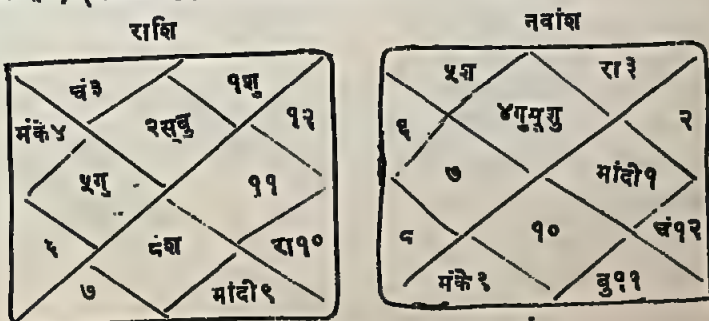 राशि
नवांश
चं३
१शु
मंके४
२सूबु
१२
५गु
११
६
८श
रा१०
७
मांदी९
५श
रा३
६
४गुसूशु
२
७
मांदी१
८
१०
चं१२
मंके९
बु११